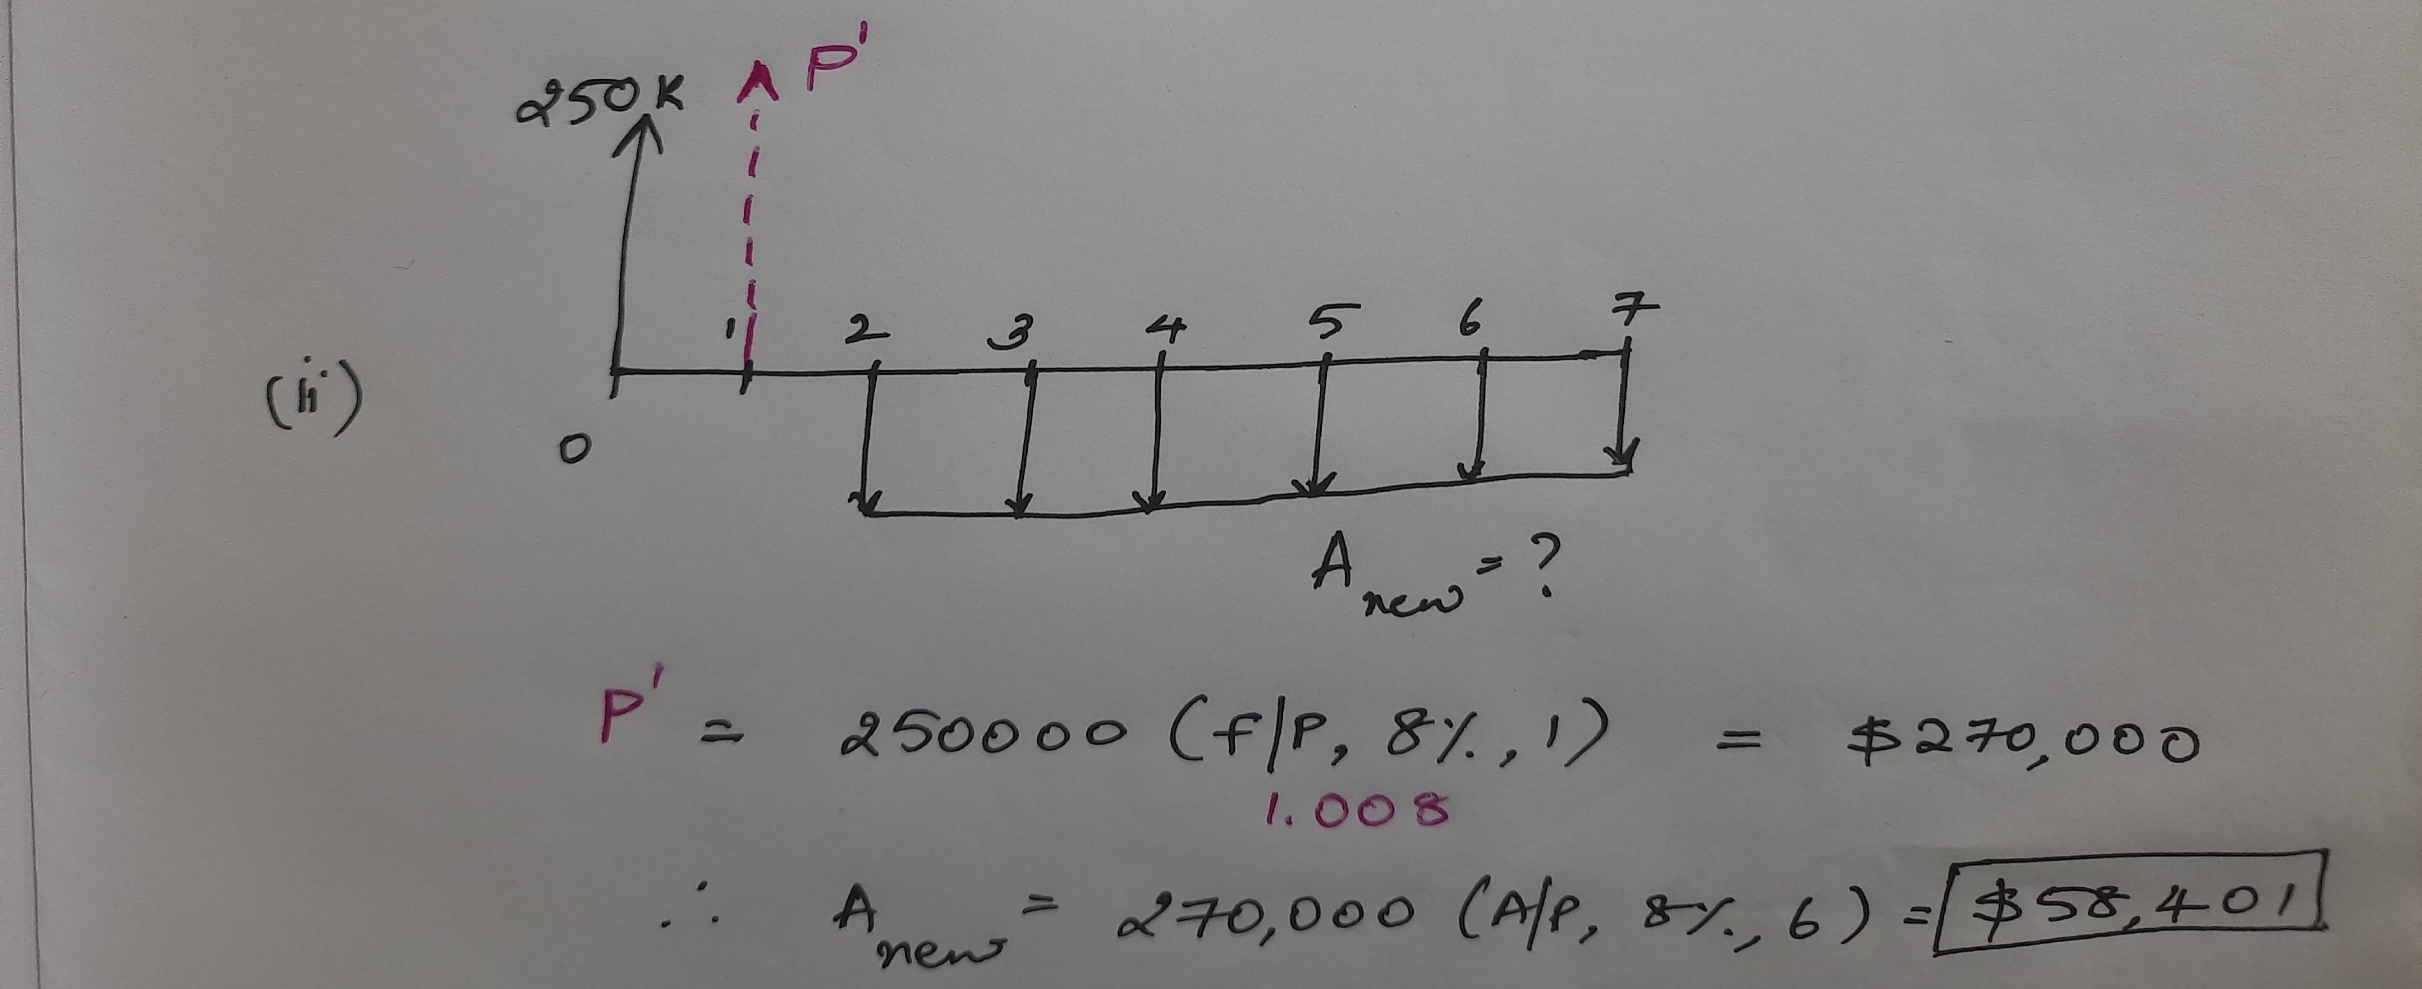 250K P'
1 2 3 4 5 6 7
(ii)
0
A new = ?
P' = 250000 (f/P, 8%, 1) = $270,000
1.008
∴ A new = 270,000 (A/P, 8%, 6) = $58,401